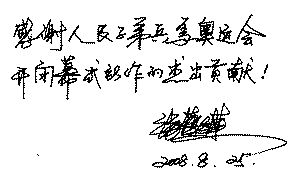 感谢人民子弟兵为奥运会
开闭幕式所作的杰出贡献！
2008.8.25.